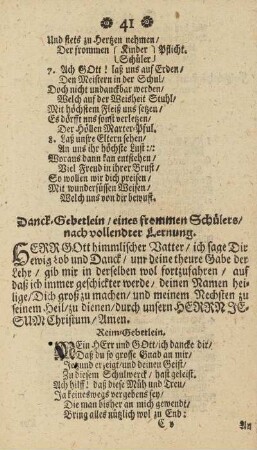 41
Und stets zu Hertzen nehmen/
Der frommen Kinder Pflicht.
Schüler
7. Ach GOtt! laß uns auf Erden/
Den Meistern in der Schul/
Doch nicht undanckbar werden/
Welch auf der Weisheit Stuhl/
Mit höchstem Fleiß uns setzen/
Es dörfft uns sonst verletzen/
Der Höllen Marter-Pful.
8. Laß unsre Eltern sehen/
An uns ihr höchste Lust:/:
Woraus dann kan entstehen/
Viel Freud in ihrer Brust/
So wollen wir dich preisen/
Mit wundersüssen Weisen/
Welch uns von dir bewust.
Danck-Gebetlein/ eines frommen Schülers/
nach vollendter Lernung.
HERR GOtt himmlischer Vatter/ ich sage Dir
ewig Lob und Danck/ um deine theure Gabe der
Lehr/ gib mir in derselben wol fortzufahren/ auf
daß ich immer geschickter werde/ deinen Namen hei-
lige/ Dich groß zu machen/ und meinem Nechsten zu
seinem Heil/ zu dienen/ durch unsern HERRN JE-
SUM Christum/ Amen.
Reim-Gebetlein.
MEin Herr und GOtt/ ich dancke dir/
Daß du so grosse Gnad an mir/
Jtzund erzeigt/ und deinen Geist/
Zu diesem Schulwerck/ hast geleist.
Ach hilff! daß diese Müh und Treu/
Ja keineswegs vergebens sey/
Die man bisher an mich gewendt/
Bring alles nützlich wol zu End:
C v An